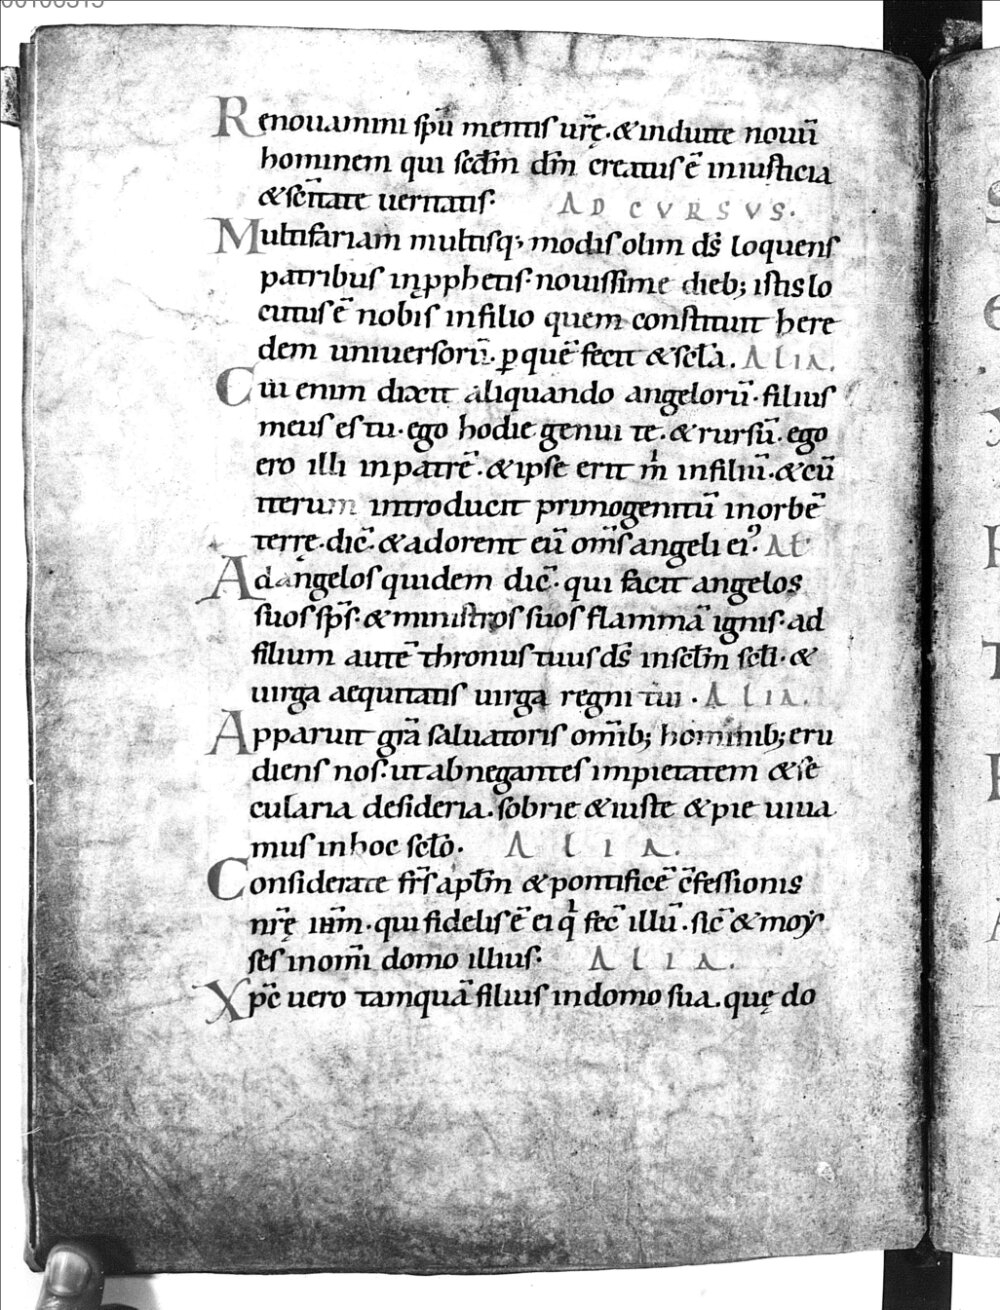 Renouamini spū mentis ur̄ę. & induite nouū
hominem qui scdm̄ dm̄ creatus ē iniusticia
& sc̄itate ueritatis· AD CVRSVS.
Multifariam multisq; modis olim ds̄ loquens
patribus inp̱phetis· nouissime dieb; istis lo
cutus ē nobis infilio quem constituit here
dem uniuersorū. ꝑ quē fecit & scl̄a. ALIA.
Cui enim dixit aliquando angelorū· filius
meus es tu· ego hodie genui te. & rursū. ego
ero illi inpatrē. & ipse erit m̍ infiliū. & cū
iterum introducit primogenitū inorbē
terrę. dic̄. & adorent eū om̄s angeli ei᾽. AL̄
Ad angelos quidem dic̄· qui facit angelos
suos sp̄s· & ministros suos flammā ignis· ad
filium autē thronus tuus ds̄ inscl̄m scl̄i· &
uirga aequitatis uirga regni tui · ALIA.
Apparuit gr̄a saluatoris om̄ib; hominib; eru
diens nos· ut abnegantes impietatem & sę
cularia desideria. sobrie & iuste & pie uiua
mus inhoc scl̄o. ALIA.
Considerate fr̄s apl̄m & pontificē c̄fessionis
nr̄ę ihm̄· qui fidelis ē ei q̍ fec̄ illū. sic̄ & moẏ
ses inom̄i domo illius· ALIA.
Xp̄c uero tamquā filius indomo sua. quę do